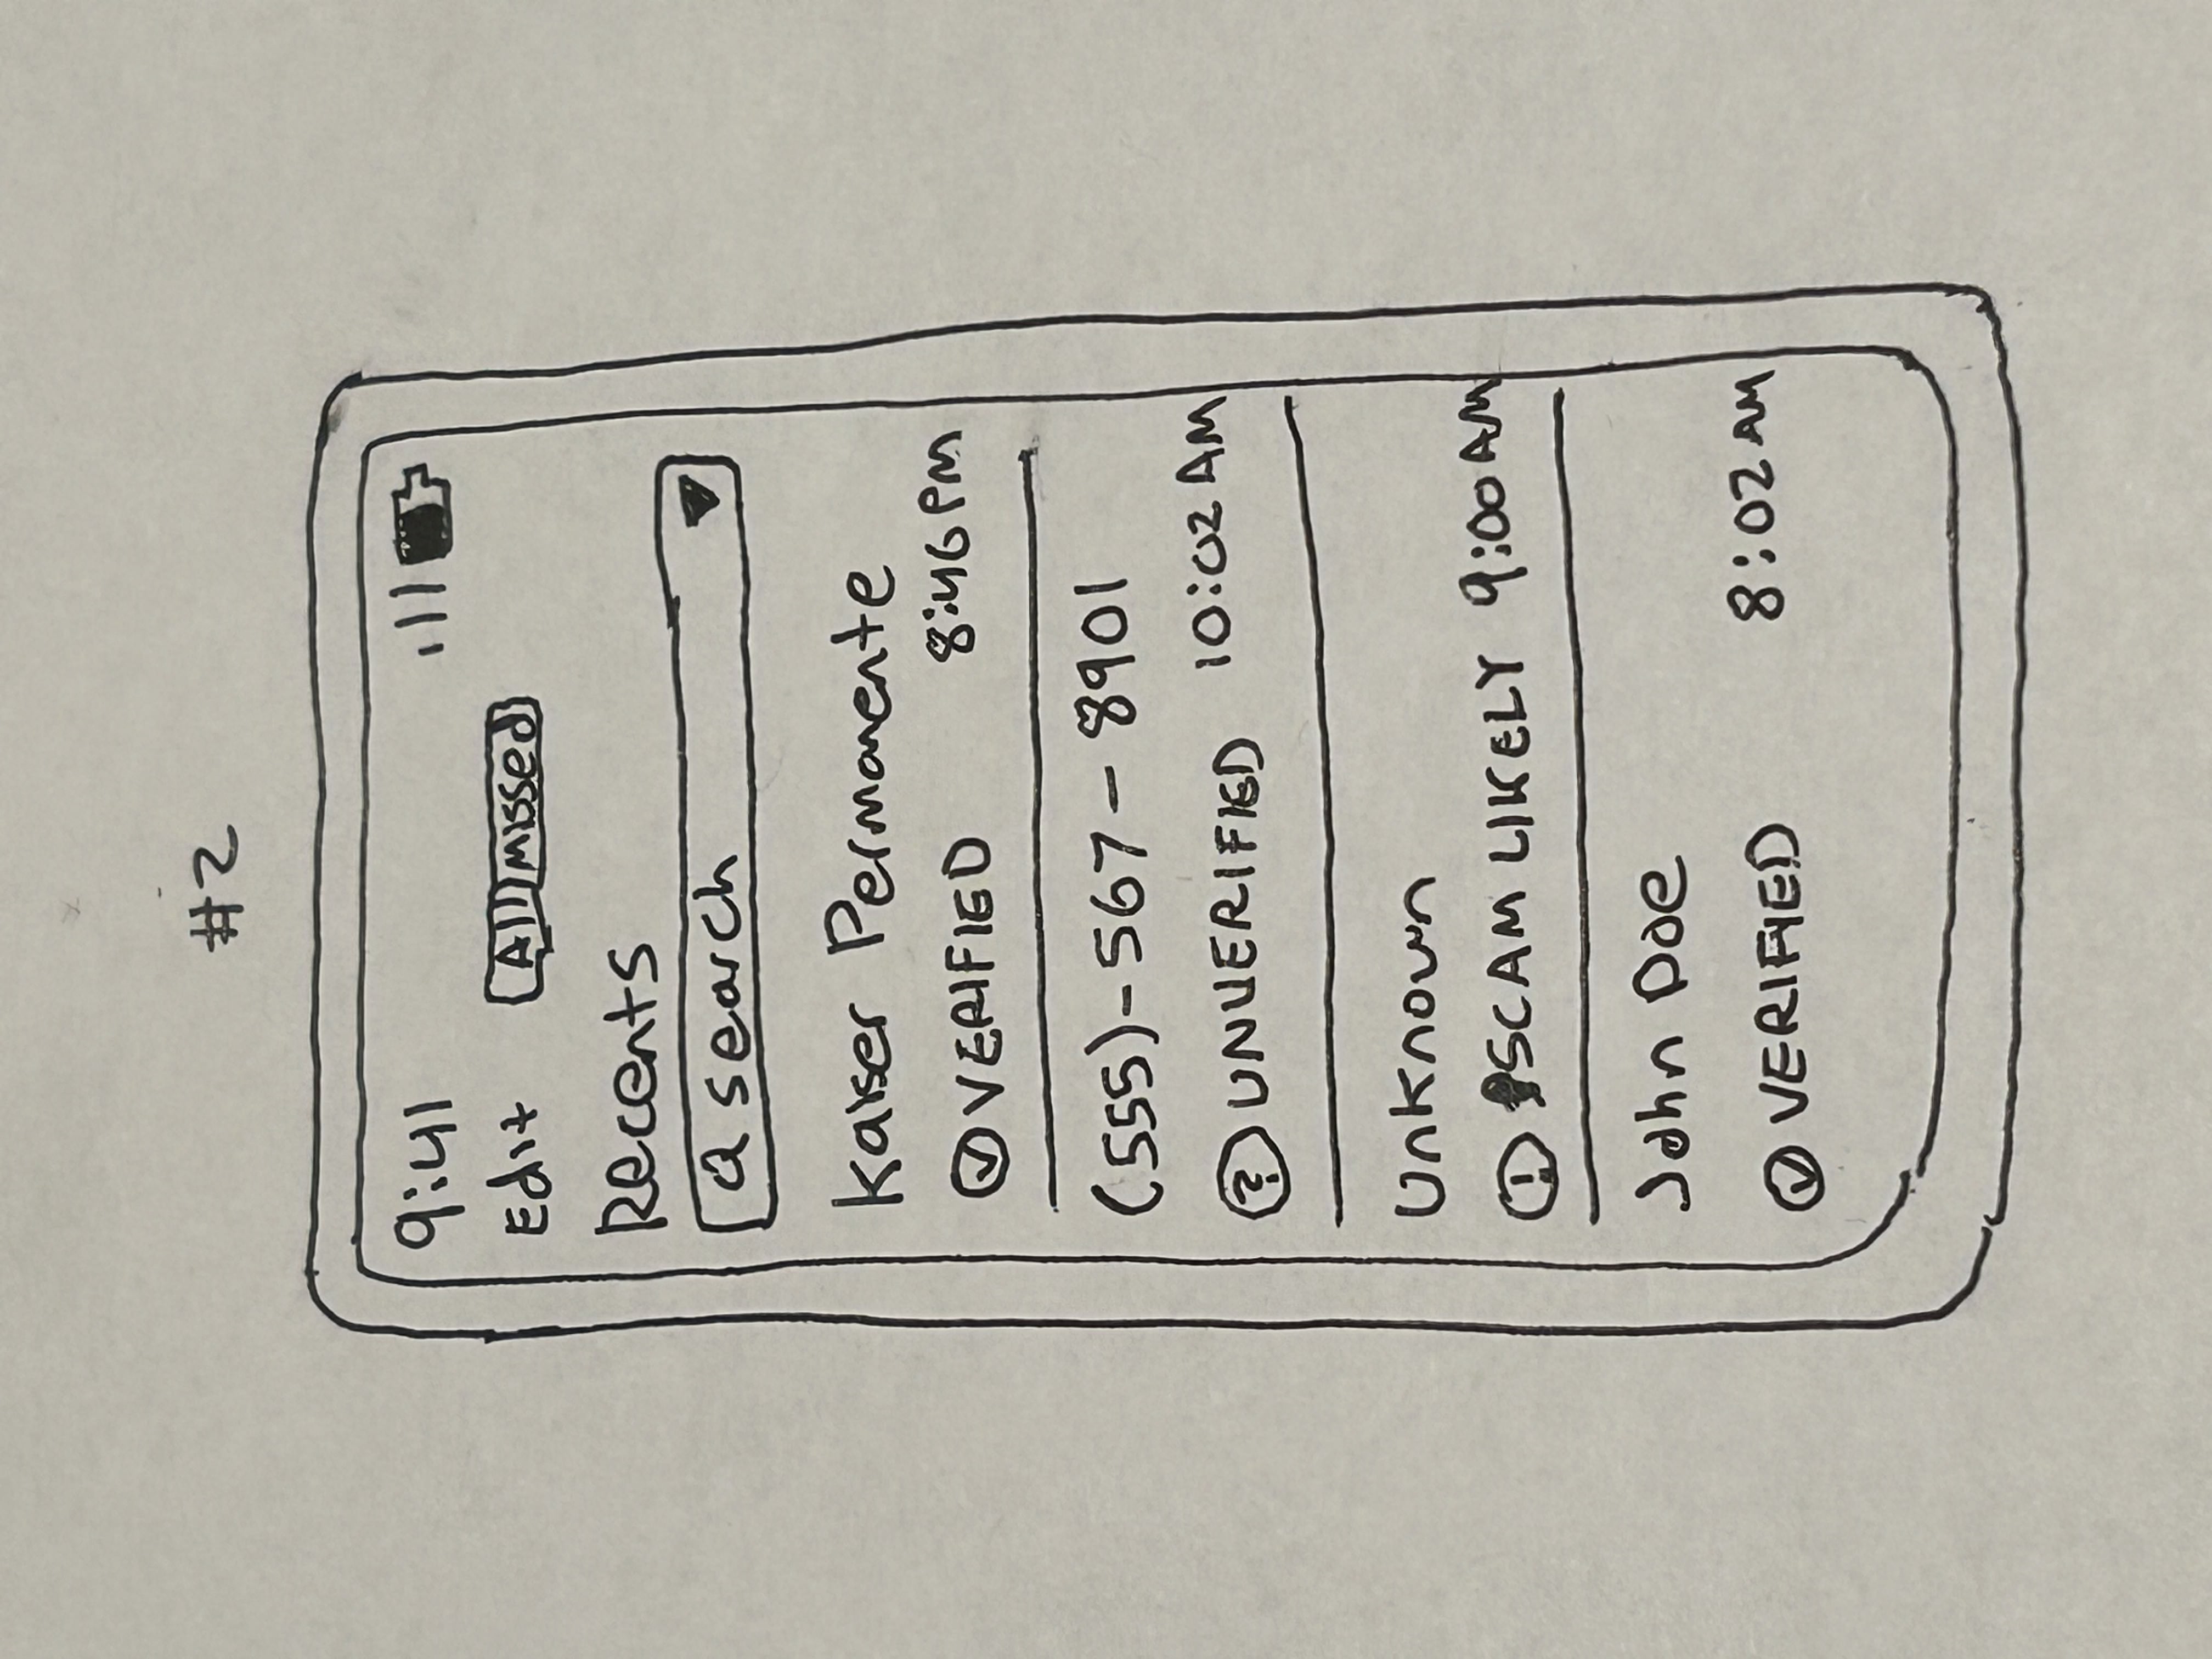 #2
9:41
Edit All Missed
Recents
search
Kaiser Permanente
VERIFIED 8:46 PM
(555)-567-8901
? UNVERIFIED 10:02 AM
Unknown
! SCAM LIKELY 9:00 AM
John Doe
VERIFIED 8:02 AM